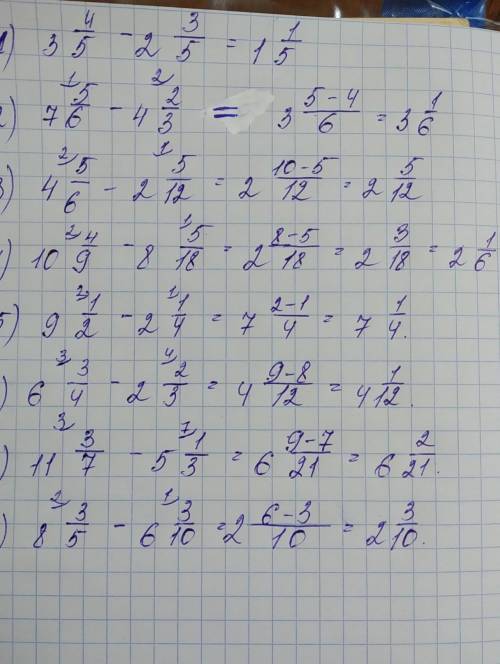 1) 3 4/5 - 2 3/5 = 1 1/5
2) 7 5/6 - 4 2/3 = 3 (5-4)/6 = 3 1/6
3) 4 5/6 - 2 5/12 = 2 (10-5)/12 = 2 5/12
) 10 4/9 - 8 5/18 = 2 (8-5)/18 = 2 3/18 = 2 1/6
5) 9 1/2 - 2 1/4 = 7 (2-1)/4 = 7 1/4.
) 6 3/4 - 2 2/3 = 4 (9-8)/12 = 4 1/12.
) 11 3/7 - 5 1/3 = 6 (9-7)/21 = 6 2/21.
) 8 3/5 - 6 3/10 = 2 (6-3)/10 = 2 3/10.